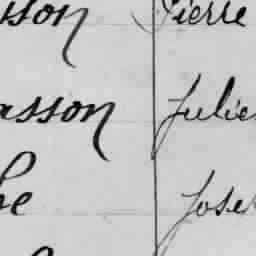 ison Pierre
asson Julie
he Jose